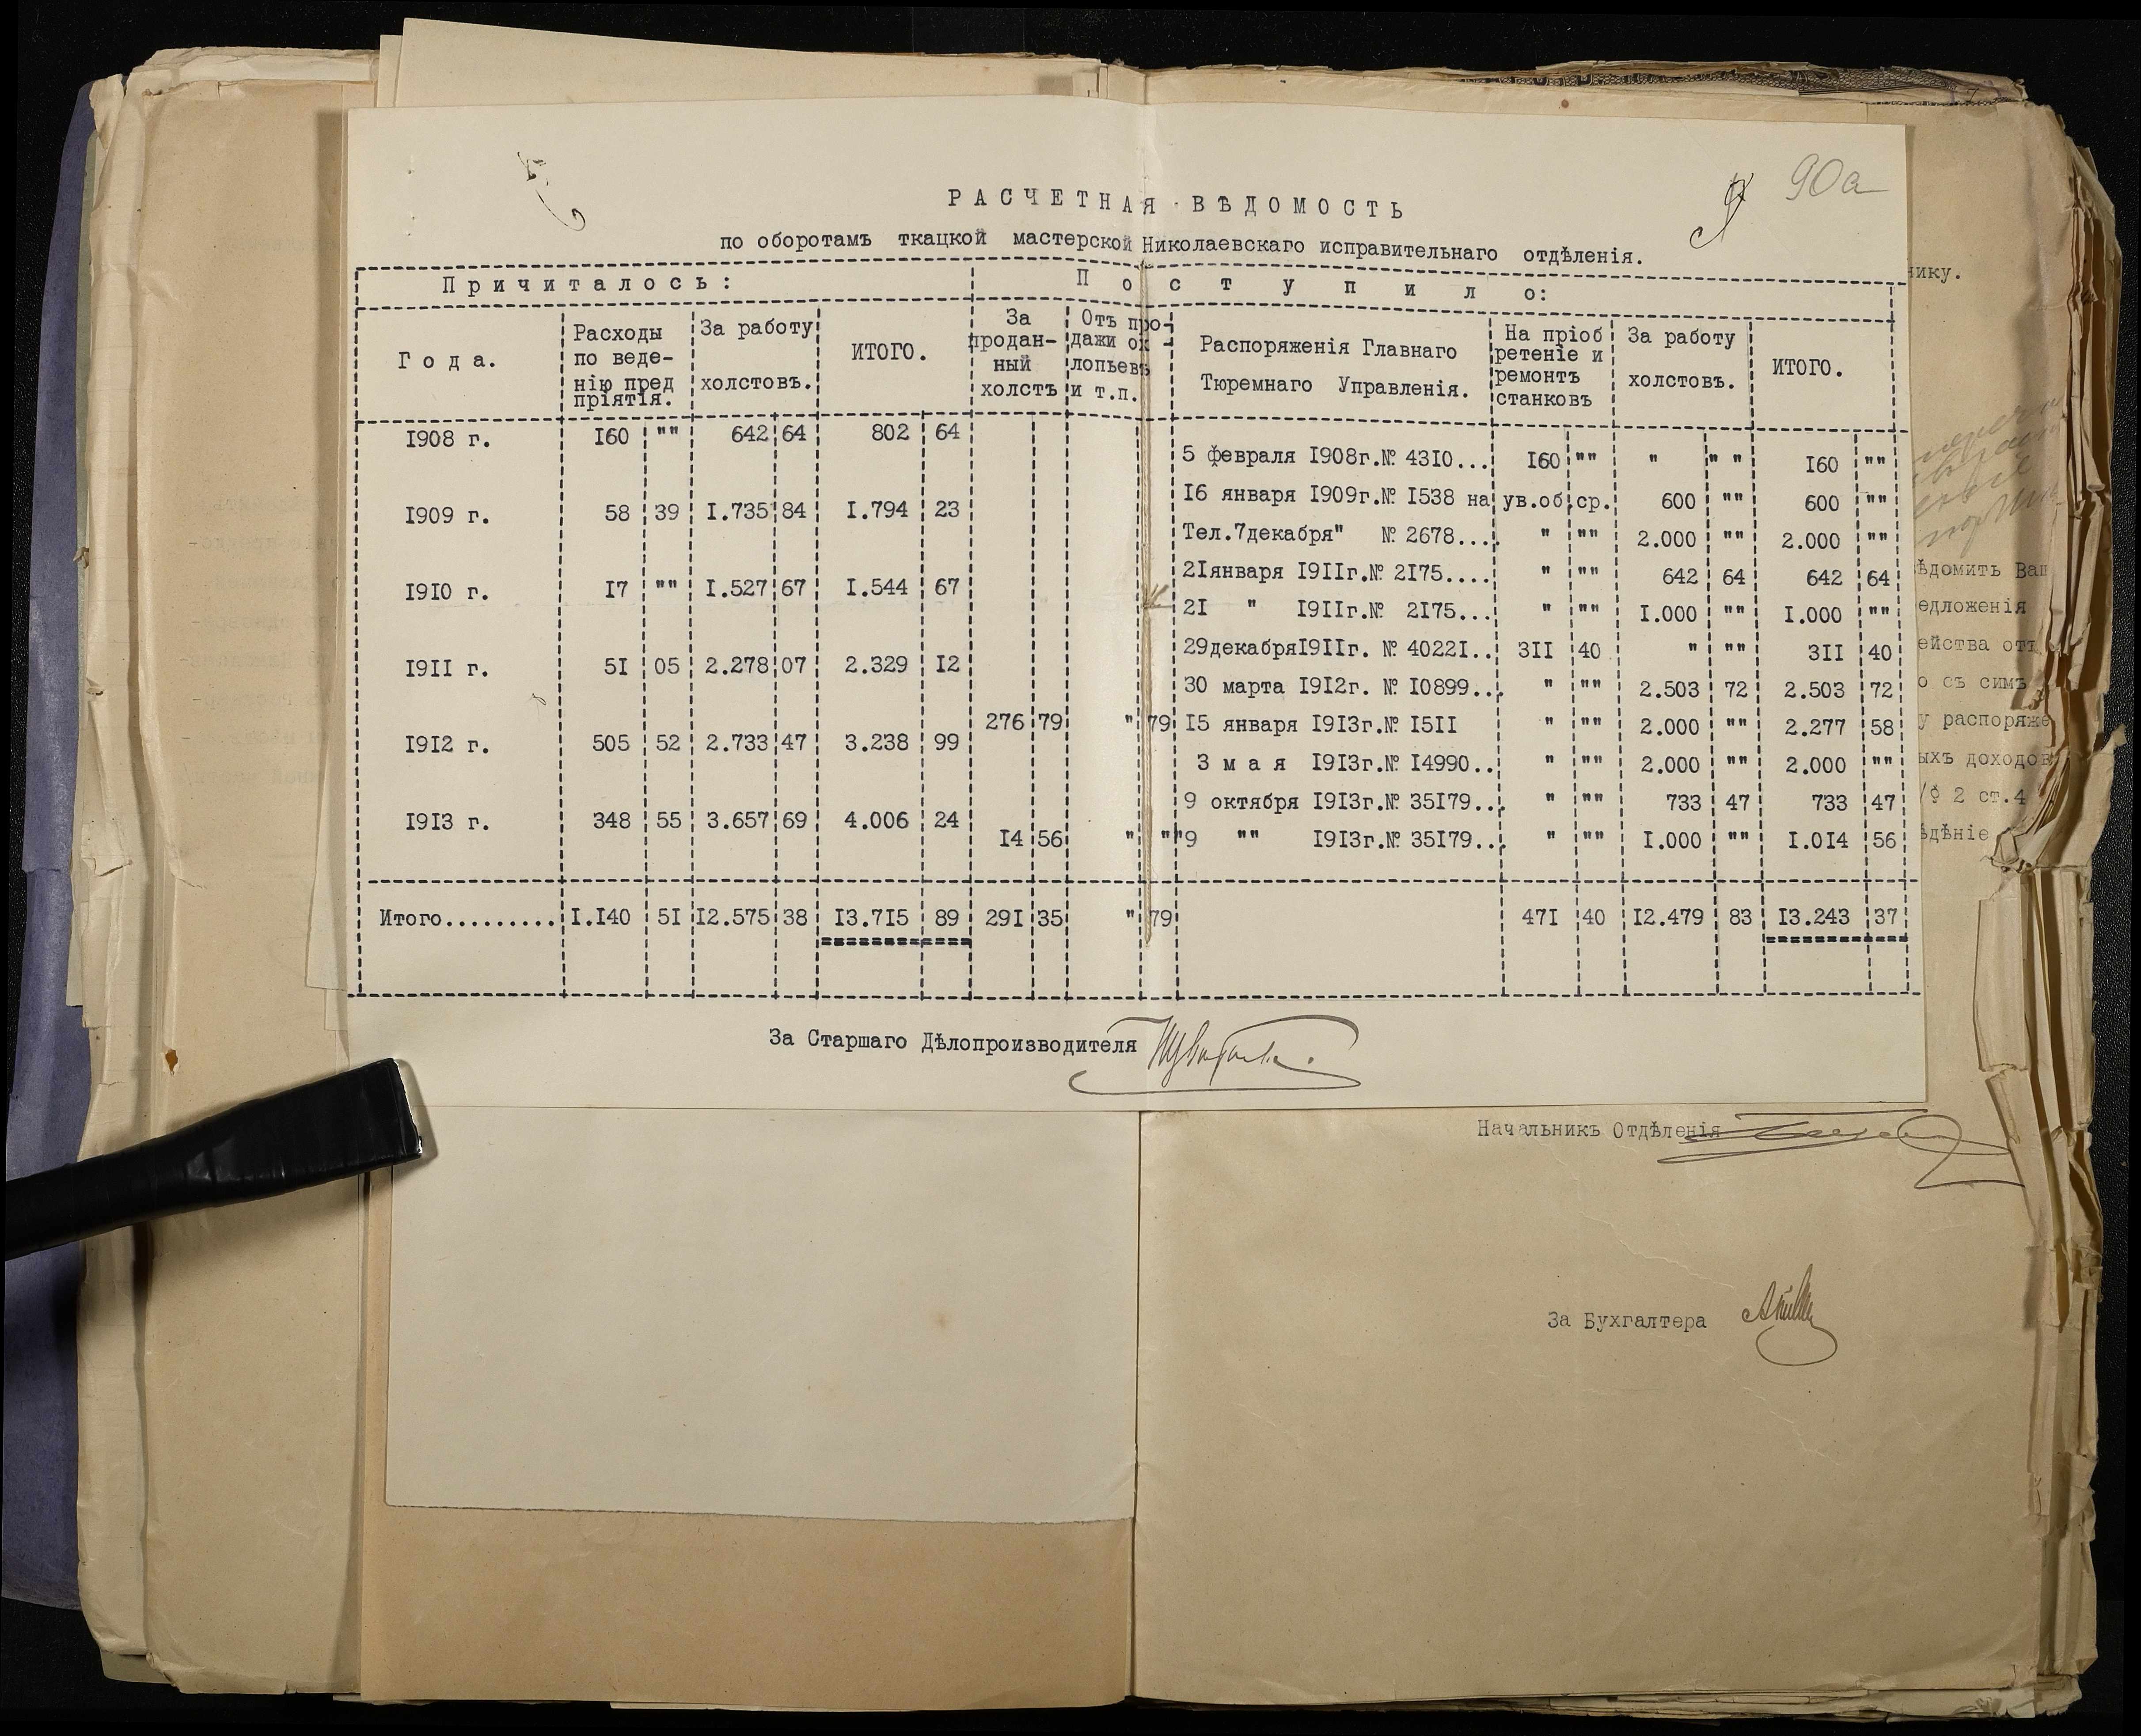 90а
РАСЧЕТНАЯ ВѢДОМОСТЬ
по оборотамъ ткацкой мастерской Николаевскаго исправительнаго отдѣленія.
Причиталось: Поступило:
Года. Расходы по веде- нію пред пріятія. За работу холстовъ. ИТОГО. За продан- ный холстъ Отъ про- дажи ох - лопьевъ и т.п. Распоряженія Главнаго Тюремнаго Управленія. На пріоб ретеніе и ремонтъ станковъ За работу холстовъ. ИТОГО.
I908 г. I60 "" 642 64 802 64
5 февраля I908г.№ 43I0... I60 "" " " " I60 ""
I6 января I909г.№ I538 на ув.об.ср. 600 "" 600 ""
I909 г. 58 39 I.735 84 I.794 23
Тел.7декабря" № 2678.... " "" 2.000 "" 2.000 ""
2Iянваря I9IIг.№ 2I75.... " "" 642 64 642 64
I9I0 г. I7 "" I.527 67 I.544 67
2I " I9IIг.№ 2I75... " "" I.000 "" I.000 ""
29декабряI9IIг. № 4022I.. 3II 40 " "" 3II 40
I9II г. 5I 05 2.278 07 2.329 I2
30 марта I9I2г. № I0899... " "" 2.503 72 2.503 72
276 79 " 79 I5 января I9I3г.№ I5II " "" 2.000 "" 2.277 58
I9I2 г. 505 52 2.733 47 3.238 99
3 мая I9I3г.№ I4990.. " "" 2.000 "" 2.000 ""
9 октября I9I3г.№ 35I79... " "" 733 47 733 47
I9I3 г. 348 55 3.657 69 4.006 24
I4 56 " "" 9 "" I9I3г.№ 35I79... " "" I.000 "" I.0I4 56
Итого......... I.I40 5I I2.575 38 I3.7I5 89 29I 35 " 79 47I 40 I2.479 83 I3.243 37
За Старшаго Дѣлопроизводителя
нику.
ѣдомить Ваш
едложенія
ейства отъ
о съ симъ
у распоряже
ыхъ доходов
2 ст.4
ѣдѣніе
Начальникъ Отдѣленія
За Бухгалтера